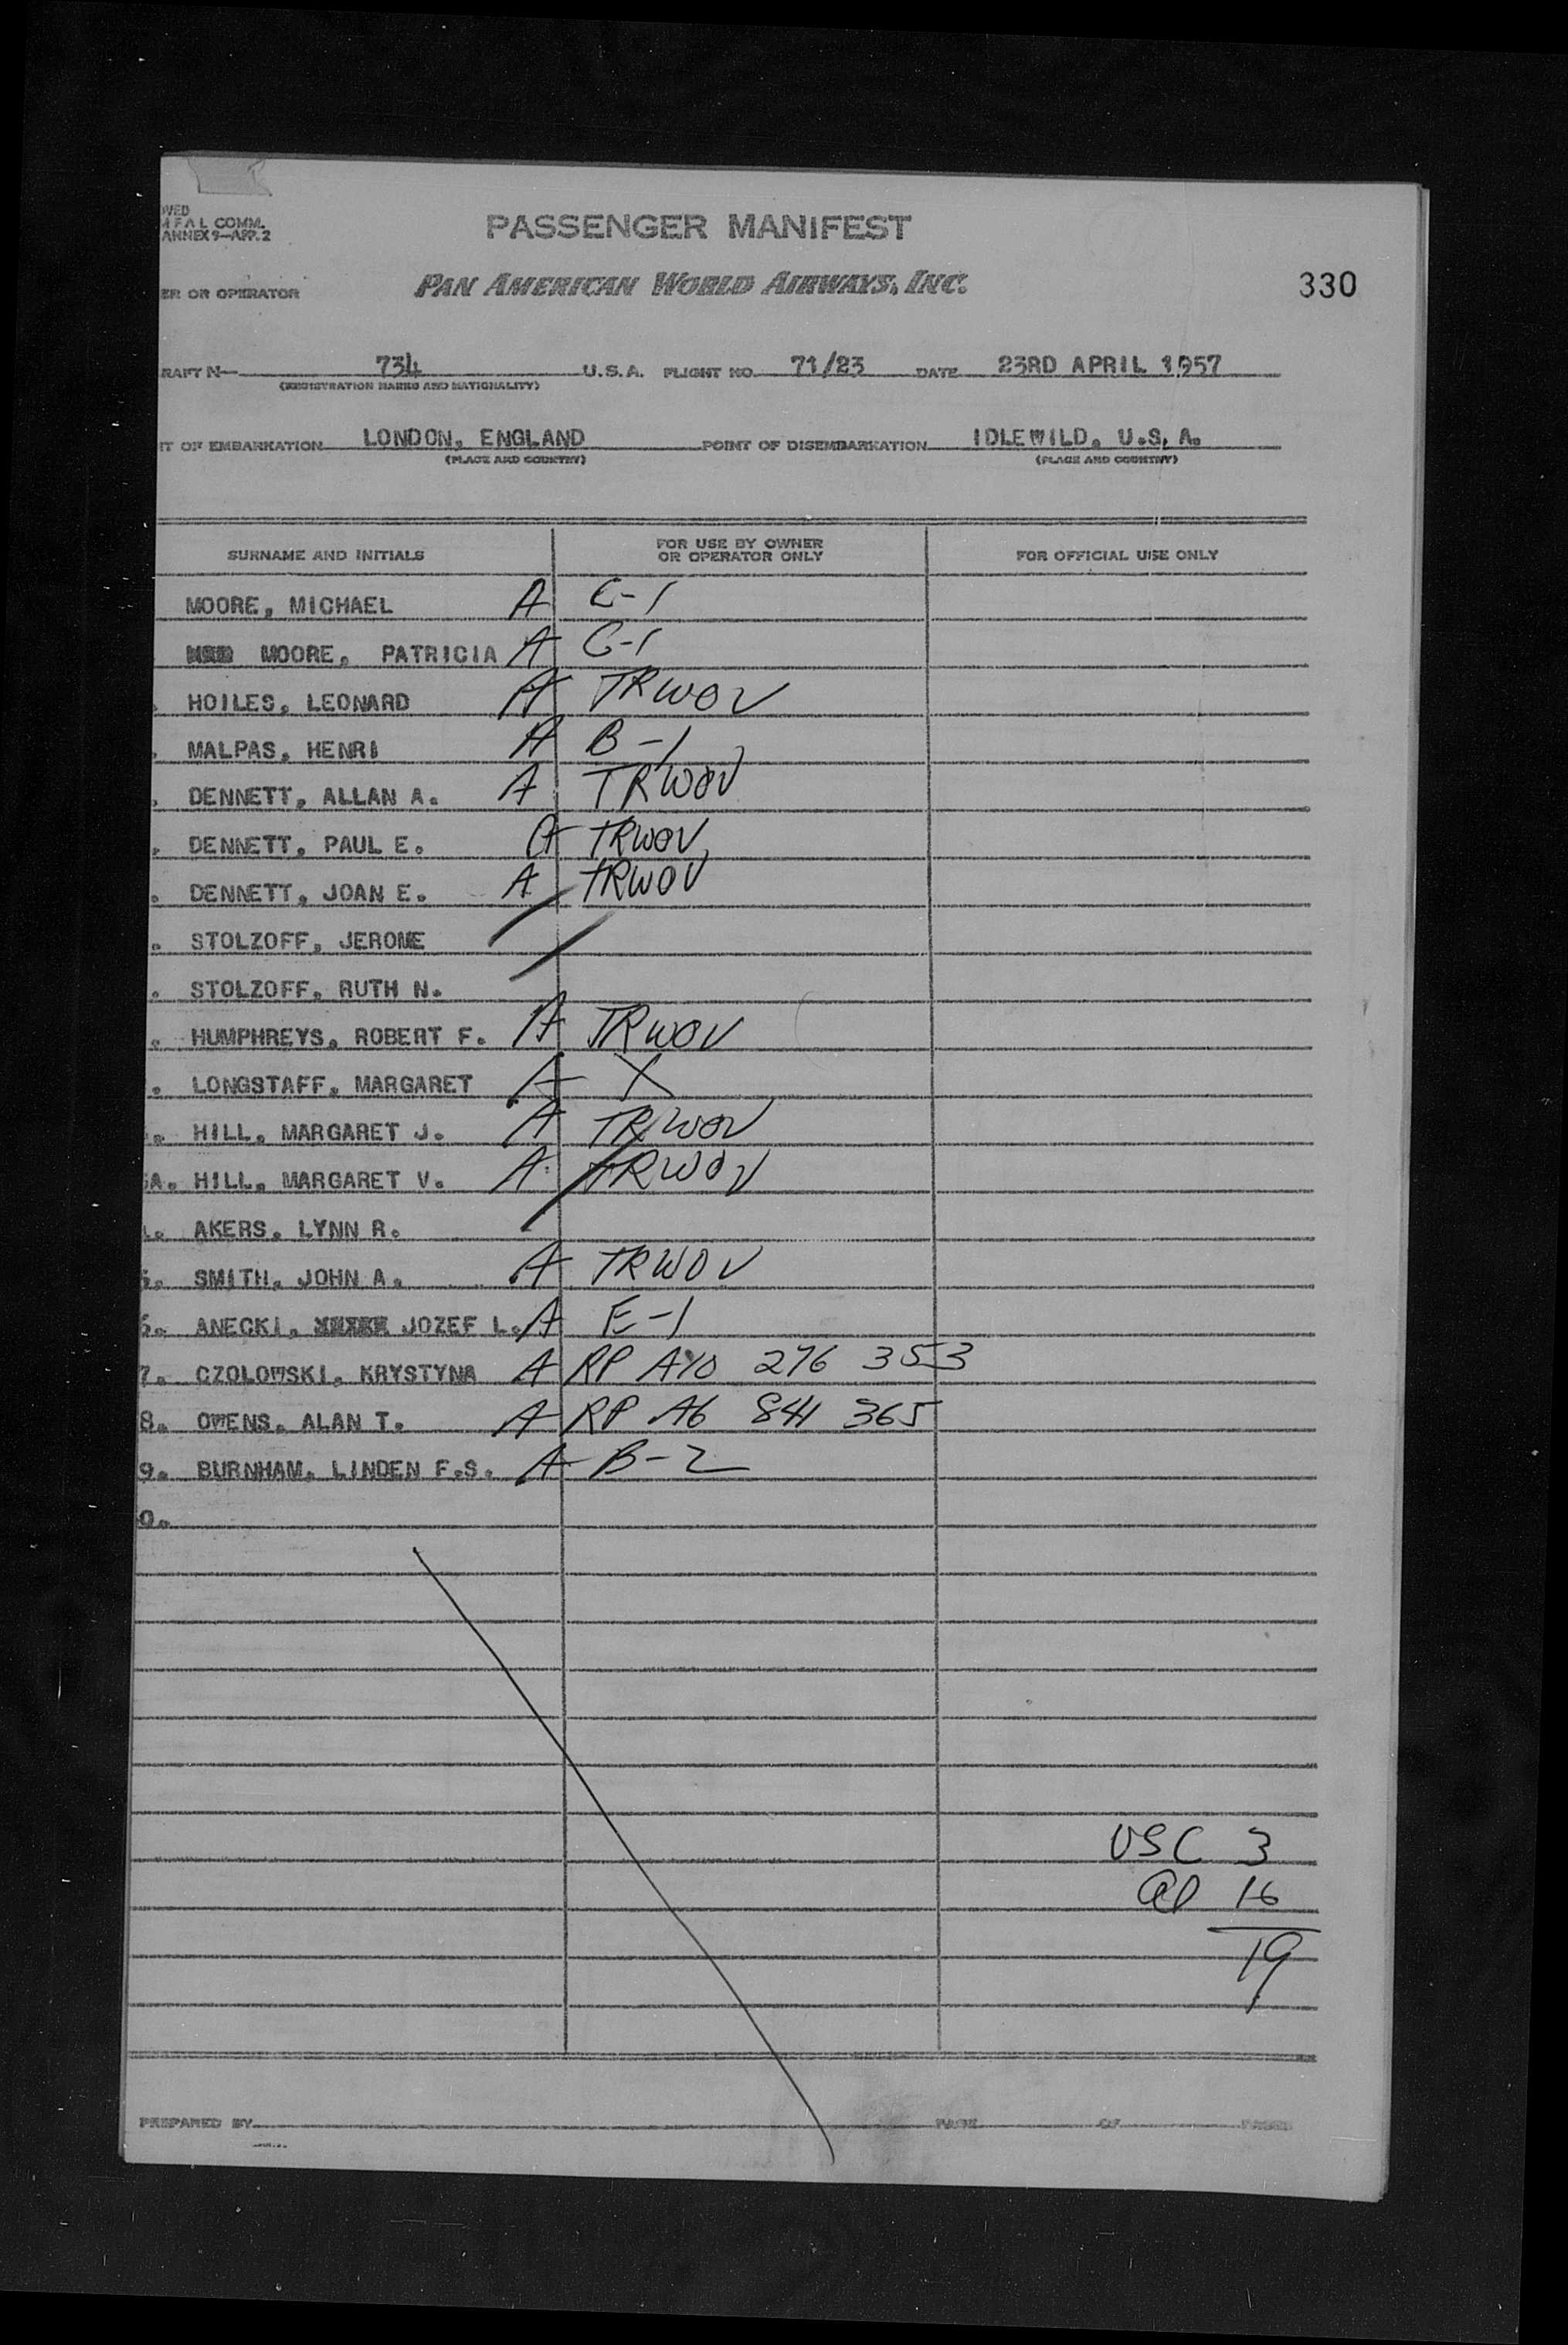 OVED
M F A L COMM.
ANNEX 9—APP. 2
PASSENGER MANIFEST
ER OR OPERATOR PAN AMERICAN WORLD AIRWAYS, INC. 330
RAFT N— 734 U.S.A. FLIGHT NO. 71/23 DATE 23RD APRIL 1957
(REGISTRATION MARKS AND NATIONALITY)
T OF EMBARKATION LONDON, ENGLAND POINT OF DISEMBARKATION IDLEWILD, U.S.A.
(PLACE AND COUNTRY) (PLACE AND COUNTRY)
SURNAME AND INITIALS FOR USE BY OWNER OR OPERATOR ONLY FOR OFFICIAL USE ONLY
MOORE, MICHAEL A C-1
MOORE, PATRICIA A C-1
. HOILES, LEONARD A TRWOV
. MALPAS, HENRI A B-1
. DENNETT, ALLAN A. A TRWOV
. DENNETT, PAUL E. A TRWOV
. DENNETT, JOAN E. A TRWOV
. STOLZOFF, JEROME
. STOLZOFF, RUTH N.
. HUMPHREYS, ROBERT F. A TRWOV
. LONGSTAFF, MARGARET A X
. HILL, MARGARET J. A TRWOV
A. HILL, MARGARET V. A TRWOV
. AKERS, LYNN R.
5. SMITH, JOHN A. A TRWOV
6. ANECKI, JOZEF L. A E-1
7. CZOLOWSKI, KRYSTYNA A RP A10 276 353
8. OWENS, ALAN T. A RP A6 841 365
9. BURNHAM, LINDEN F.S. A B-2
0.
USC 3
al 16
19
PREPARED BY PAGE OF PAGES